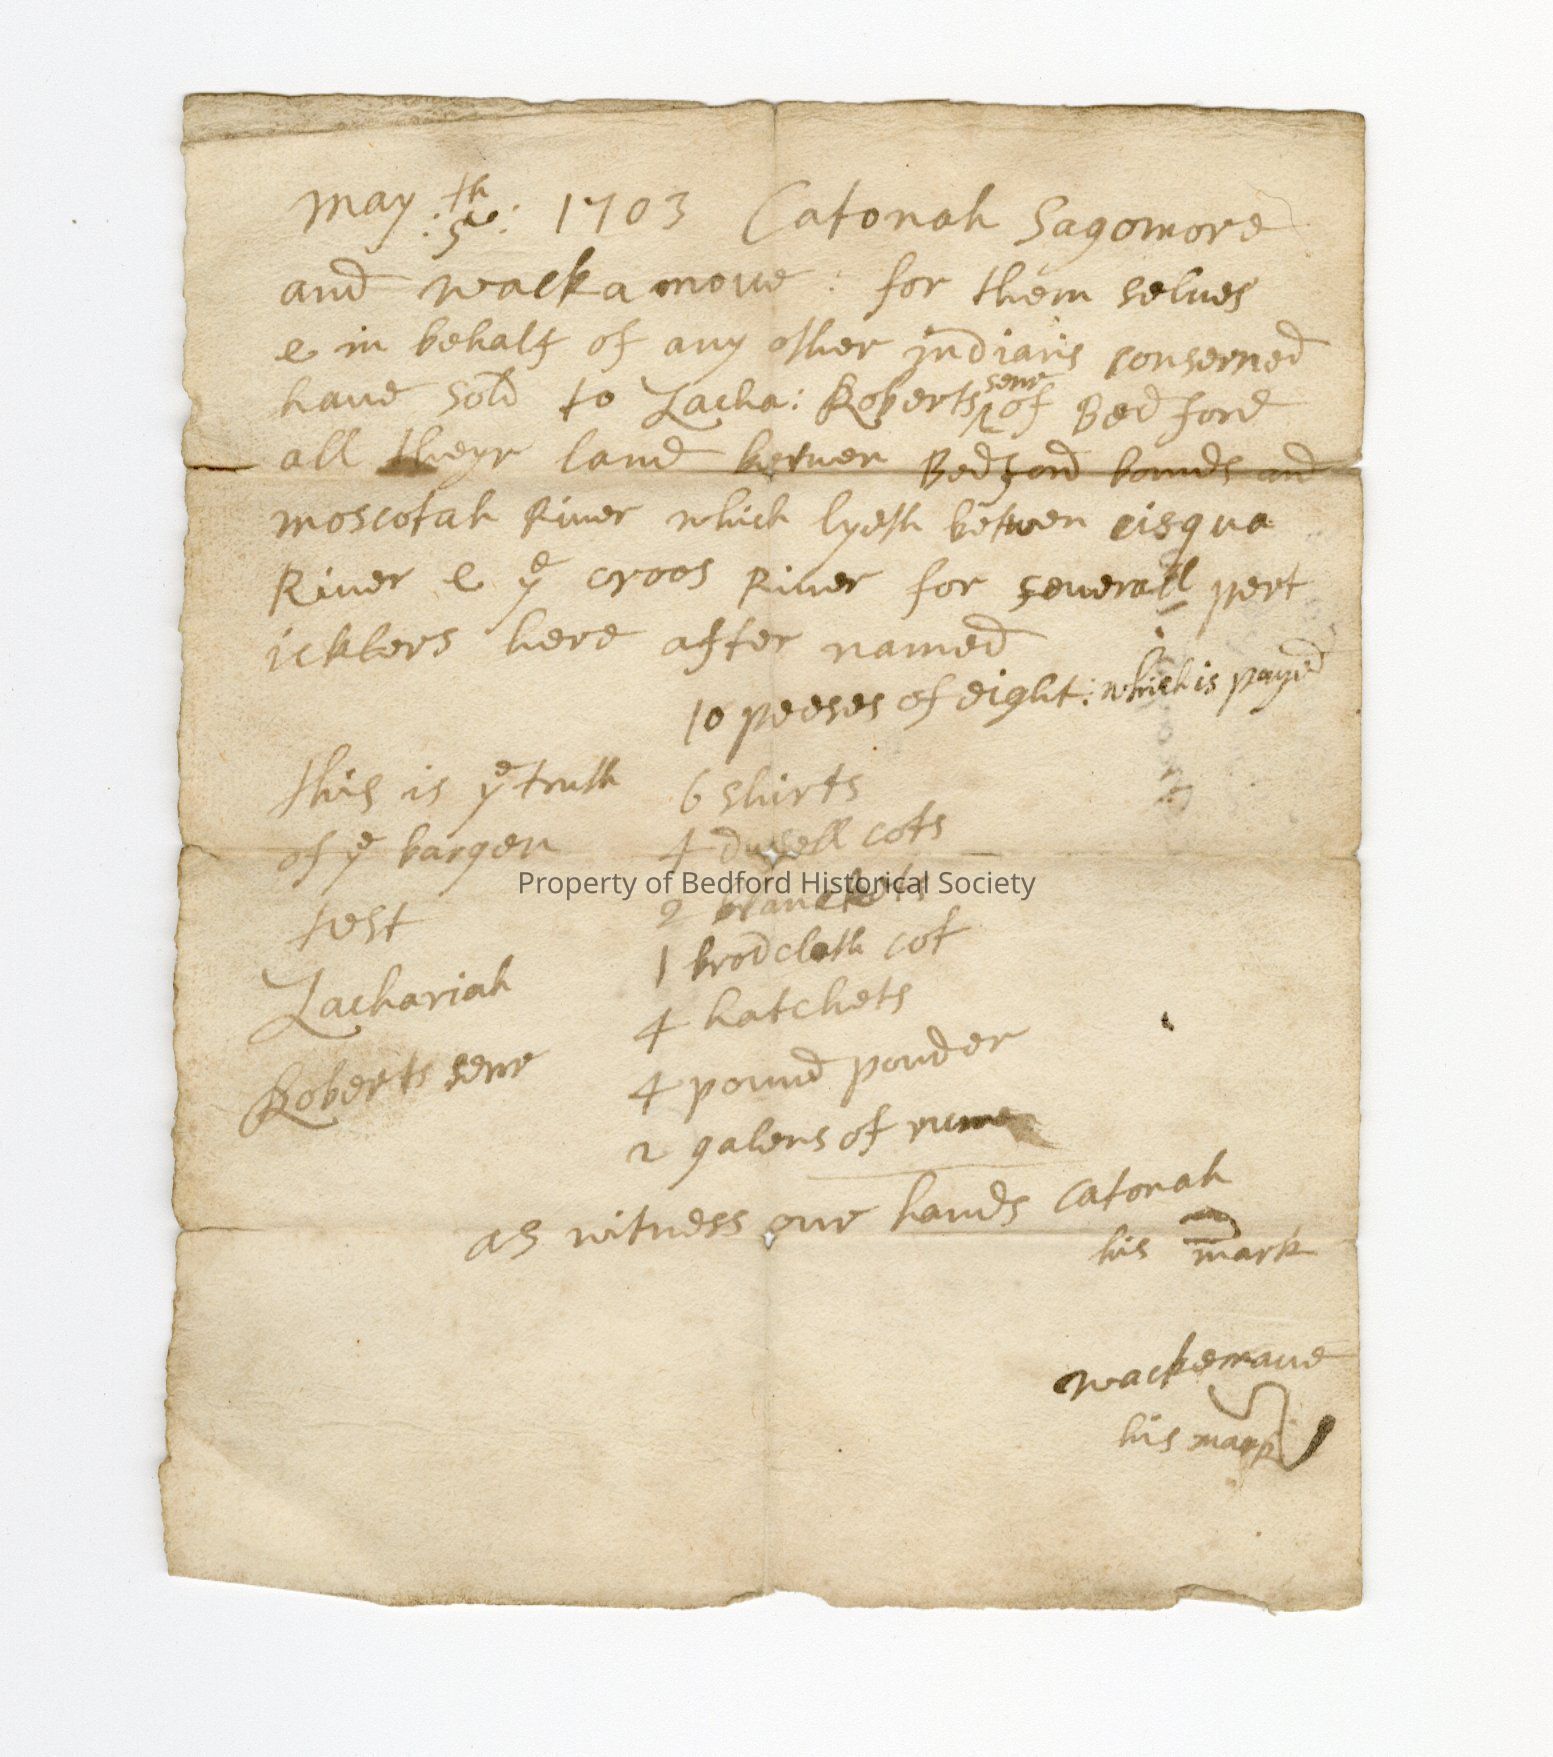 may :5th: 1703 Catonah Sagomore
and wackamoue : for them selues
& in behalf of any other indians conserned
haue sold to Zacha: Roberts senr of Bedford
all theyr land betwen Bedford bounds and
moscotah Riuer which lyeth betwen cisqua
Riuer & ye croos Riuer for seuerall pert
icklers here after named
10 peeses of eight: which is payed
this is ye truth
of ye bargen
test
Zachariah
Roberts senr
6 shirts
4 dufell cots
2 blanckets
1 brodcloth cot
4 hatchets
4 pound pouder
2 galens of rume
as witness our hands Catonah
his mark
wackemaue
his mark
Property of Bedford Historical Society